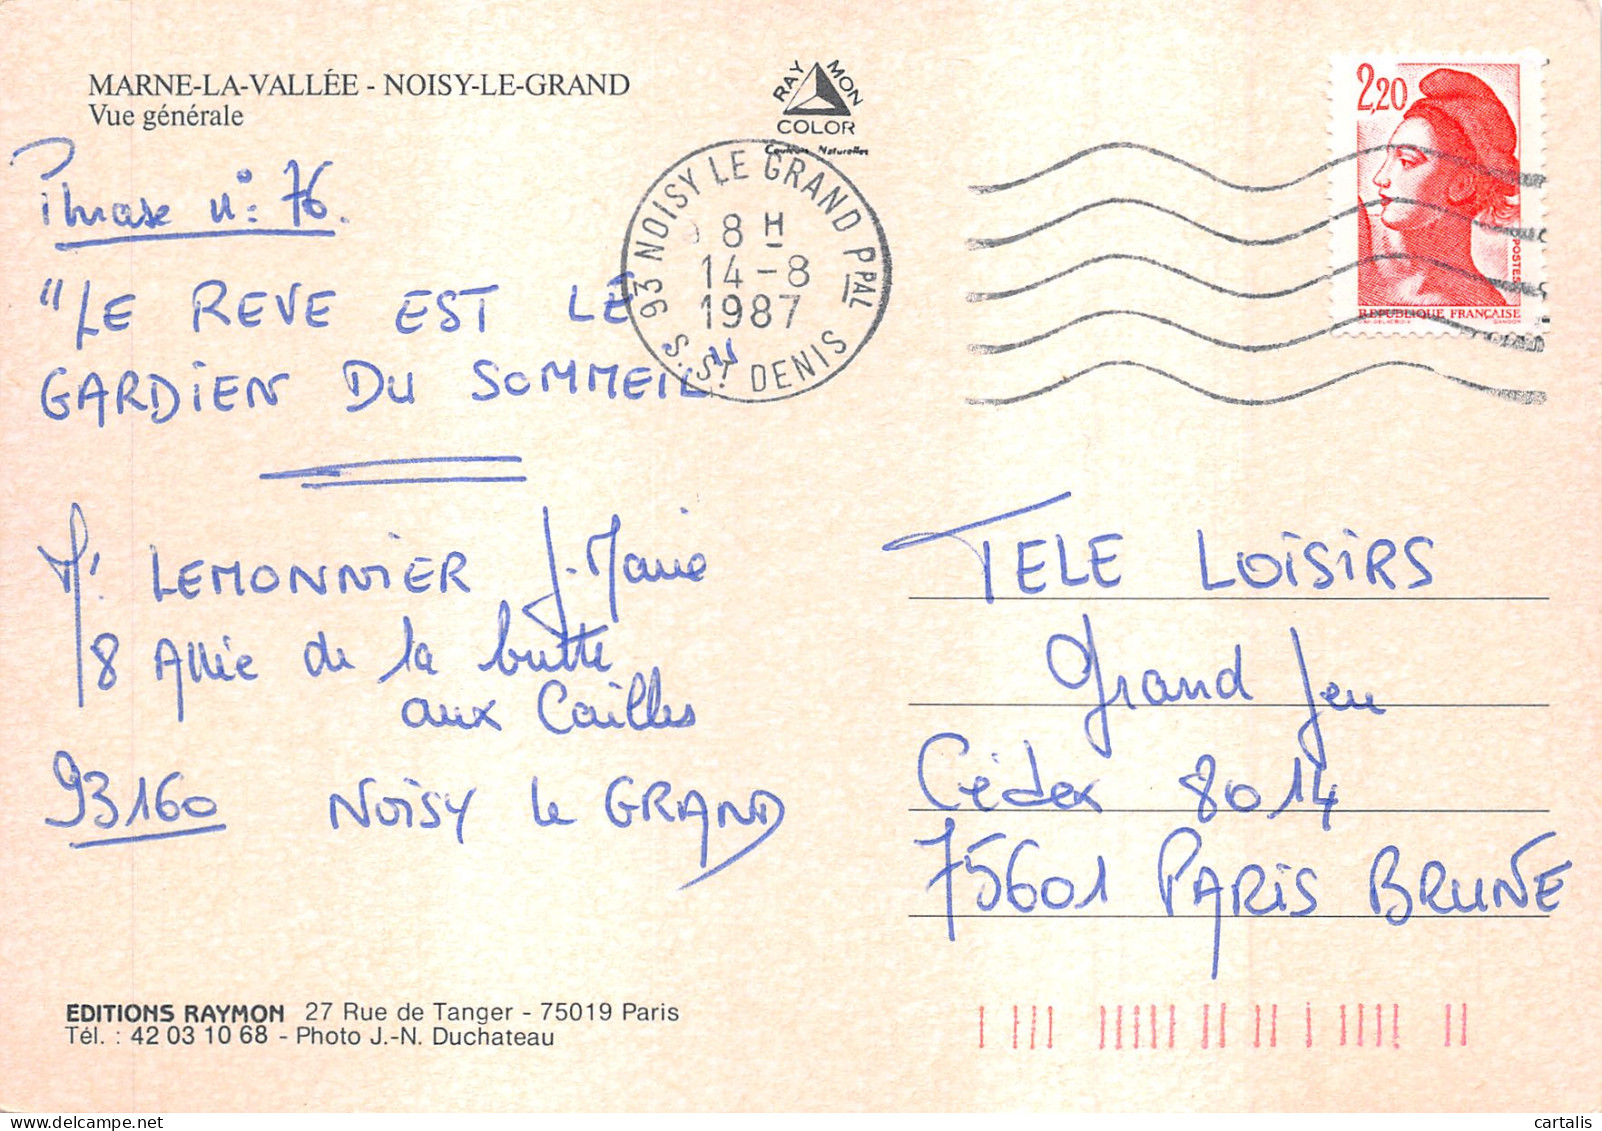 MARNE-LA-VALLÉE - NOISY-LE-GRAND
Vue générale
RAYMON
COLOR
Couleurs Naturelles
Phrase n°: 76.
"LE REVE EST LE
GARDIEN DU SOMMEIL"
Mr LEMONNIER J.Marie
8 Allée de la butte
aux Cailles
93160 NOISY le GRAND
93 NOISY LE GRAND PPAL
8 H
14-8
1987
S. ST DENIS
2,20
POSTES
REPUBLIQUE FRANÇAISE
TELE LOISIRS
Grand Jeu
Cédex 8014
75601 PARIS BRUNE
EDITIONS RAYMON 27 Rue de Tanger - 75019 Paris
Tél. : 42 03 10 68 - Photo J.-N. Duchateau
cartalis